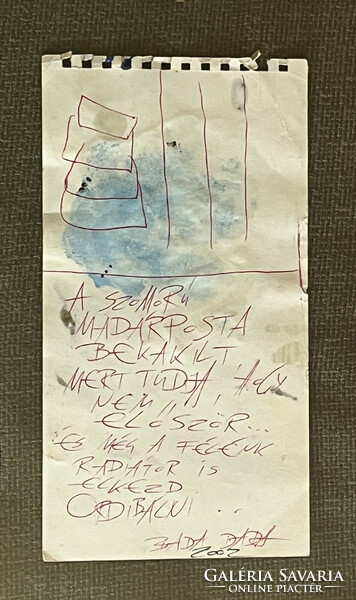 A SZOMORÚ
MADÁRPOSTA
BEKAKILT
MERT TUDJA, HOGY
NEM
ELŐSZÖR...
ÉS MÉG A FÉLÉNK
RADIÁTOR IS
ELKEZD
ORDIBÁLNI...
BADA DADA
2002
GALÉRIA SAVARIA
ONLINE PIACTÉR